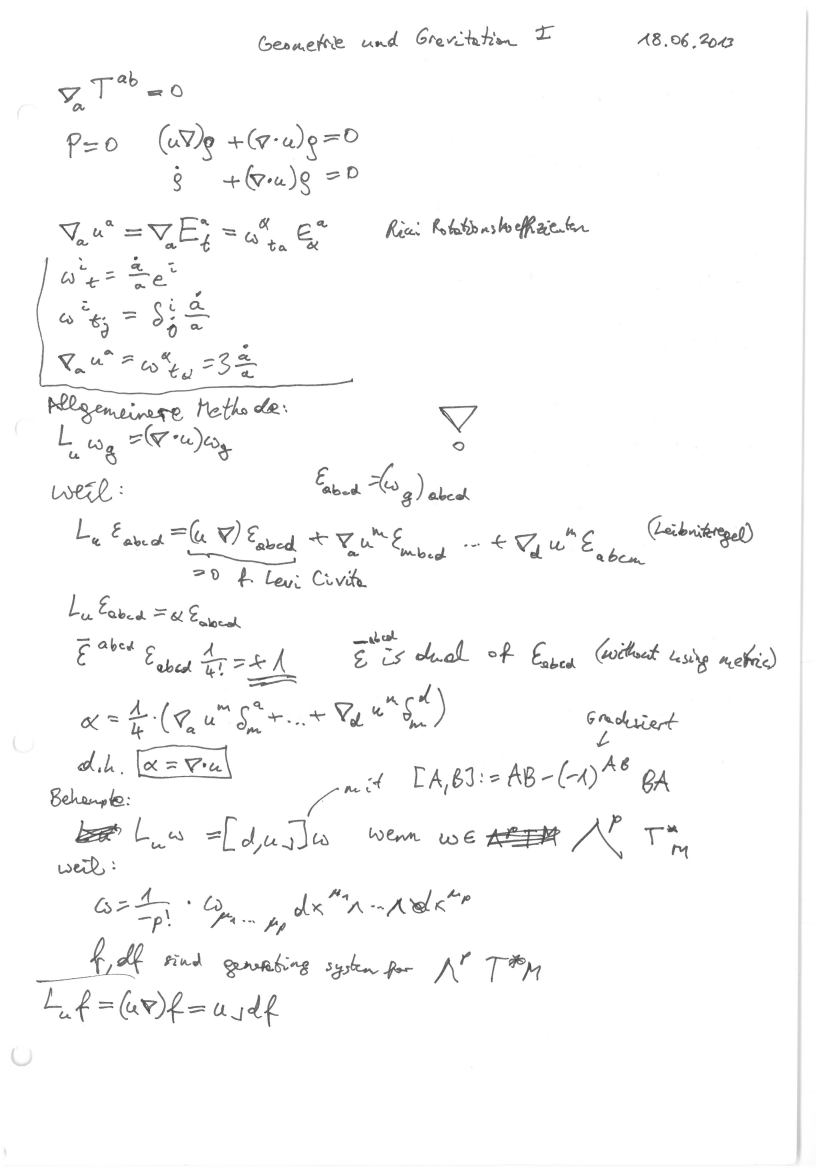 Geometrie und Gravitation I 18.06.2013
∇_a T^{ab} = 0
P=0 (u∇)ρ + (∇·u)ρ = 0
ρ̇ + (∇·u)ρ = 0
∇_a u^a = ∇_a E_t^a = ω^α_{ta} E_α^a Ricci Rotationskoeffizienten
ω^i_t = ȧ/a e^i
ω^i_{tj} = δ^i_j ȧ/a
∇_a u^a = ω^α_{tα} = 3 ȧ/a
Allgemeinere Methode:
L_u ω_g = (∇·u)ω_g
weil: ε_{abcd} = (ω_g)_{abcd}
L_u ε_{abcd} = (u ∇) ε_{abcd} + ∇_a u^m ε_{mbcd} ... + ∇_d u^m ε_{abcm} (Leibnitzregel)
=0 f. Levi Civita
L_u ε_{abcd} = α ε_{abcd}
ε̄^{abcd} ε_{abcd} 1/4! = +1 ε̄^{abcd} is dual of ε_{abcd} (without using metric)
α = 1/4 · (∇_a u^m δ_m^a + ... + ∇_d u^m δ_m^d)
Graduiert
d.h. α = ∇·u mit [A,B] := AB-(-1)^{AB} BA
Behaupte:
L_u ω = [d,u⌟]ω wenn ω∈ Λ^p T*_M
weil:
ω = 1/-p! · ω_{μ_1 ... μ_p} dx^{μ_1} ∧ ... ∧ dx^{μ_p}
f, df sind generating system for Λ^p T*M
L_u f = (u∇)f = u⌟df